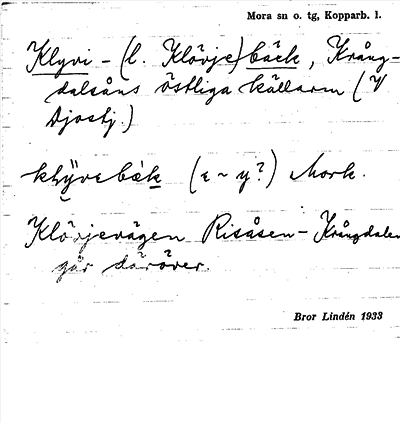 Mora sn o. tg, Kopparb. l.
Klyvi - (l. Klövje) bäck, Krång-
dalsåns östliga källarm (V
Djostj.)
(ɛ ~ y?) Mork.
Klövjevägen Risåsen - Krångdalen
går däröver.
Bror Lindén 1933